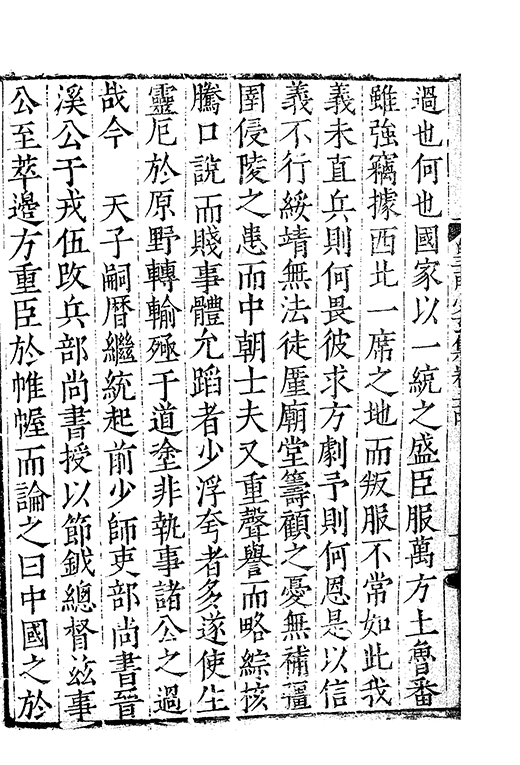 過也何也國家以一統之盛臣服萬方土魯番
雖強竊據西北一席之地而叛服不常如此我
義未直兵則何畏彼求方劇予則何恩是以信
義不行綏靖無法徒厪廟堂籌顧之憂無補疆
圉侵陵之患而中朝士夫又重聲譽而略綜核
騰口說而賤事體允蹈者少浮夸者多遂使生
靈厄於原野轉輸殛于道塗非執事諸公之過
哉今　天子嗣曆繼統起前少師吏部尚書晉
溪公于戎伍改兵部尚書授以節鉞總督茲事
公至萃邊方重臣於帷幄而論之曰中國之於